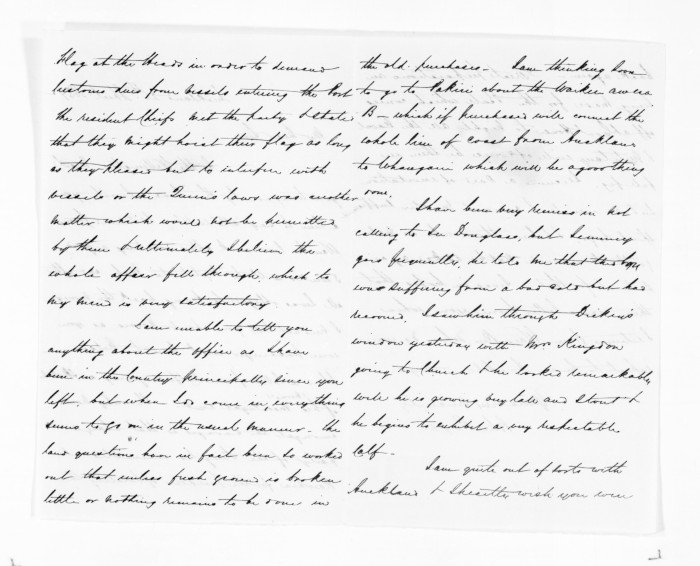 Flag at the Heads in order to demand
Customs dues from vessels entering the Port
the resident Chiefs met the party & stated
that they might hoist their flag as long
as they pleased but to interfere with
vessels or the Queen's laws was another
matter which would not be permitted
by them & ultimately I believe the
whole affair fell through, which to
my mind is very satisfactory
I am unable to tell you
anything about the office as I have
been in the Country principally since you
left, but when I do come in, everything
seems to go on in the usual manner. the
land questions have in fact been so worked
out that unless fresh ground is broken
little or nothing remains to be done in
the old purchases. I am thinking soon
to go to Pakiri about the
B - which if purchased will connect the
whole line of coast from Auckland
to Whangarei which will be a good thing
done.
I have been very remiss in not
calling to see Douglass, but
goes frequently, he told me that the boy
was suffering from a bad cold but has
recovered. I saw him through Dickens
window yesterday with Mrs Kingdon
going to Church & he looked remarkably
well he is growing very tall and stout &
he begins to exhibit a very respectable
calf -
I am quite out of sorts with
Auckland & I heartily wish you were